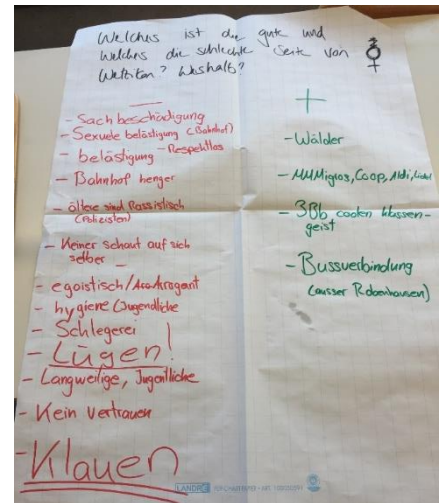 Welches ist die gute und
Welches die schlechte Seite von
Wetzikon? Weshalb?
—
- Sachbeschädigung
- Sexuele belästigung (Bahnhof)
- belästigung - Respektlos
- Bahnhof henger
- ältere sind Rassistisch
(Polizisten)
- Keiner schaut auf sich
selber
- egoistisch/Arrogant
- hygiene (Jugendliche
- Schlegerei
- Lügen!
- Langweilige, Jugentliche
- Kein Vertrauen
- Klauen
+
- Wälder
- MMMigros, Coop, Aldi, Lidl
- 3Bb coolen klassen-
geist
- Bussverbindung
(ausser Robenhausen)
LANDRÉ